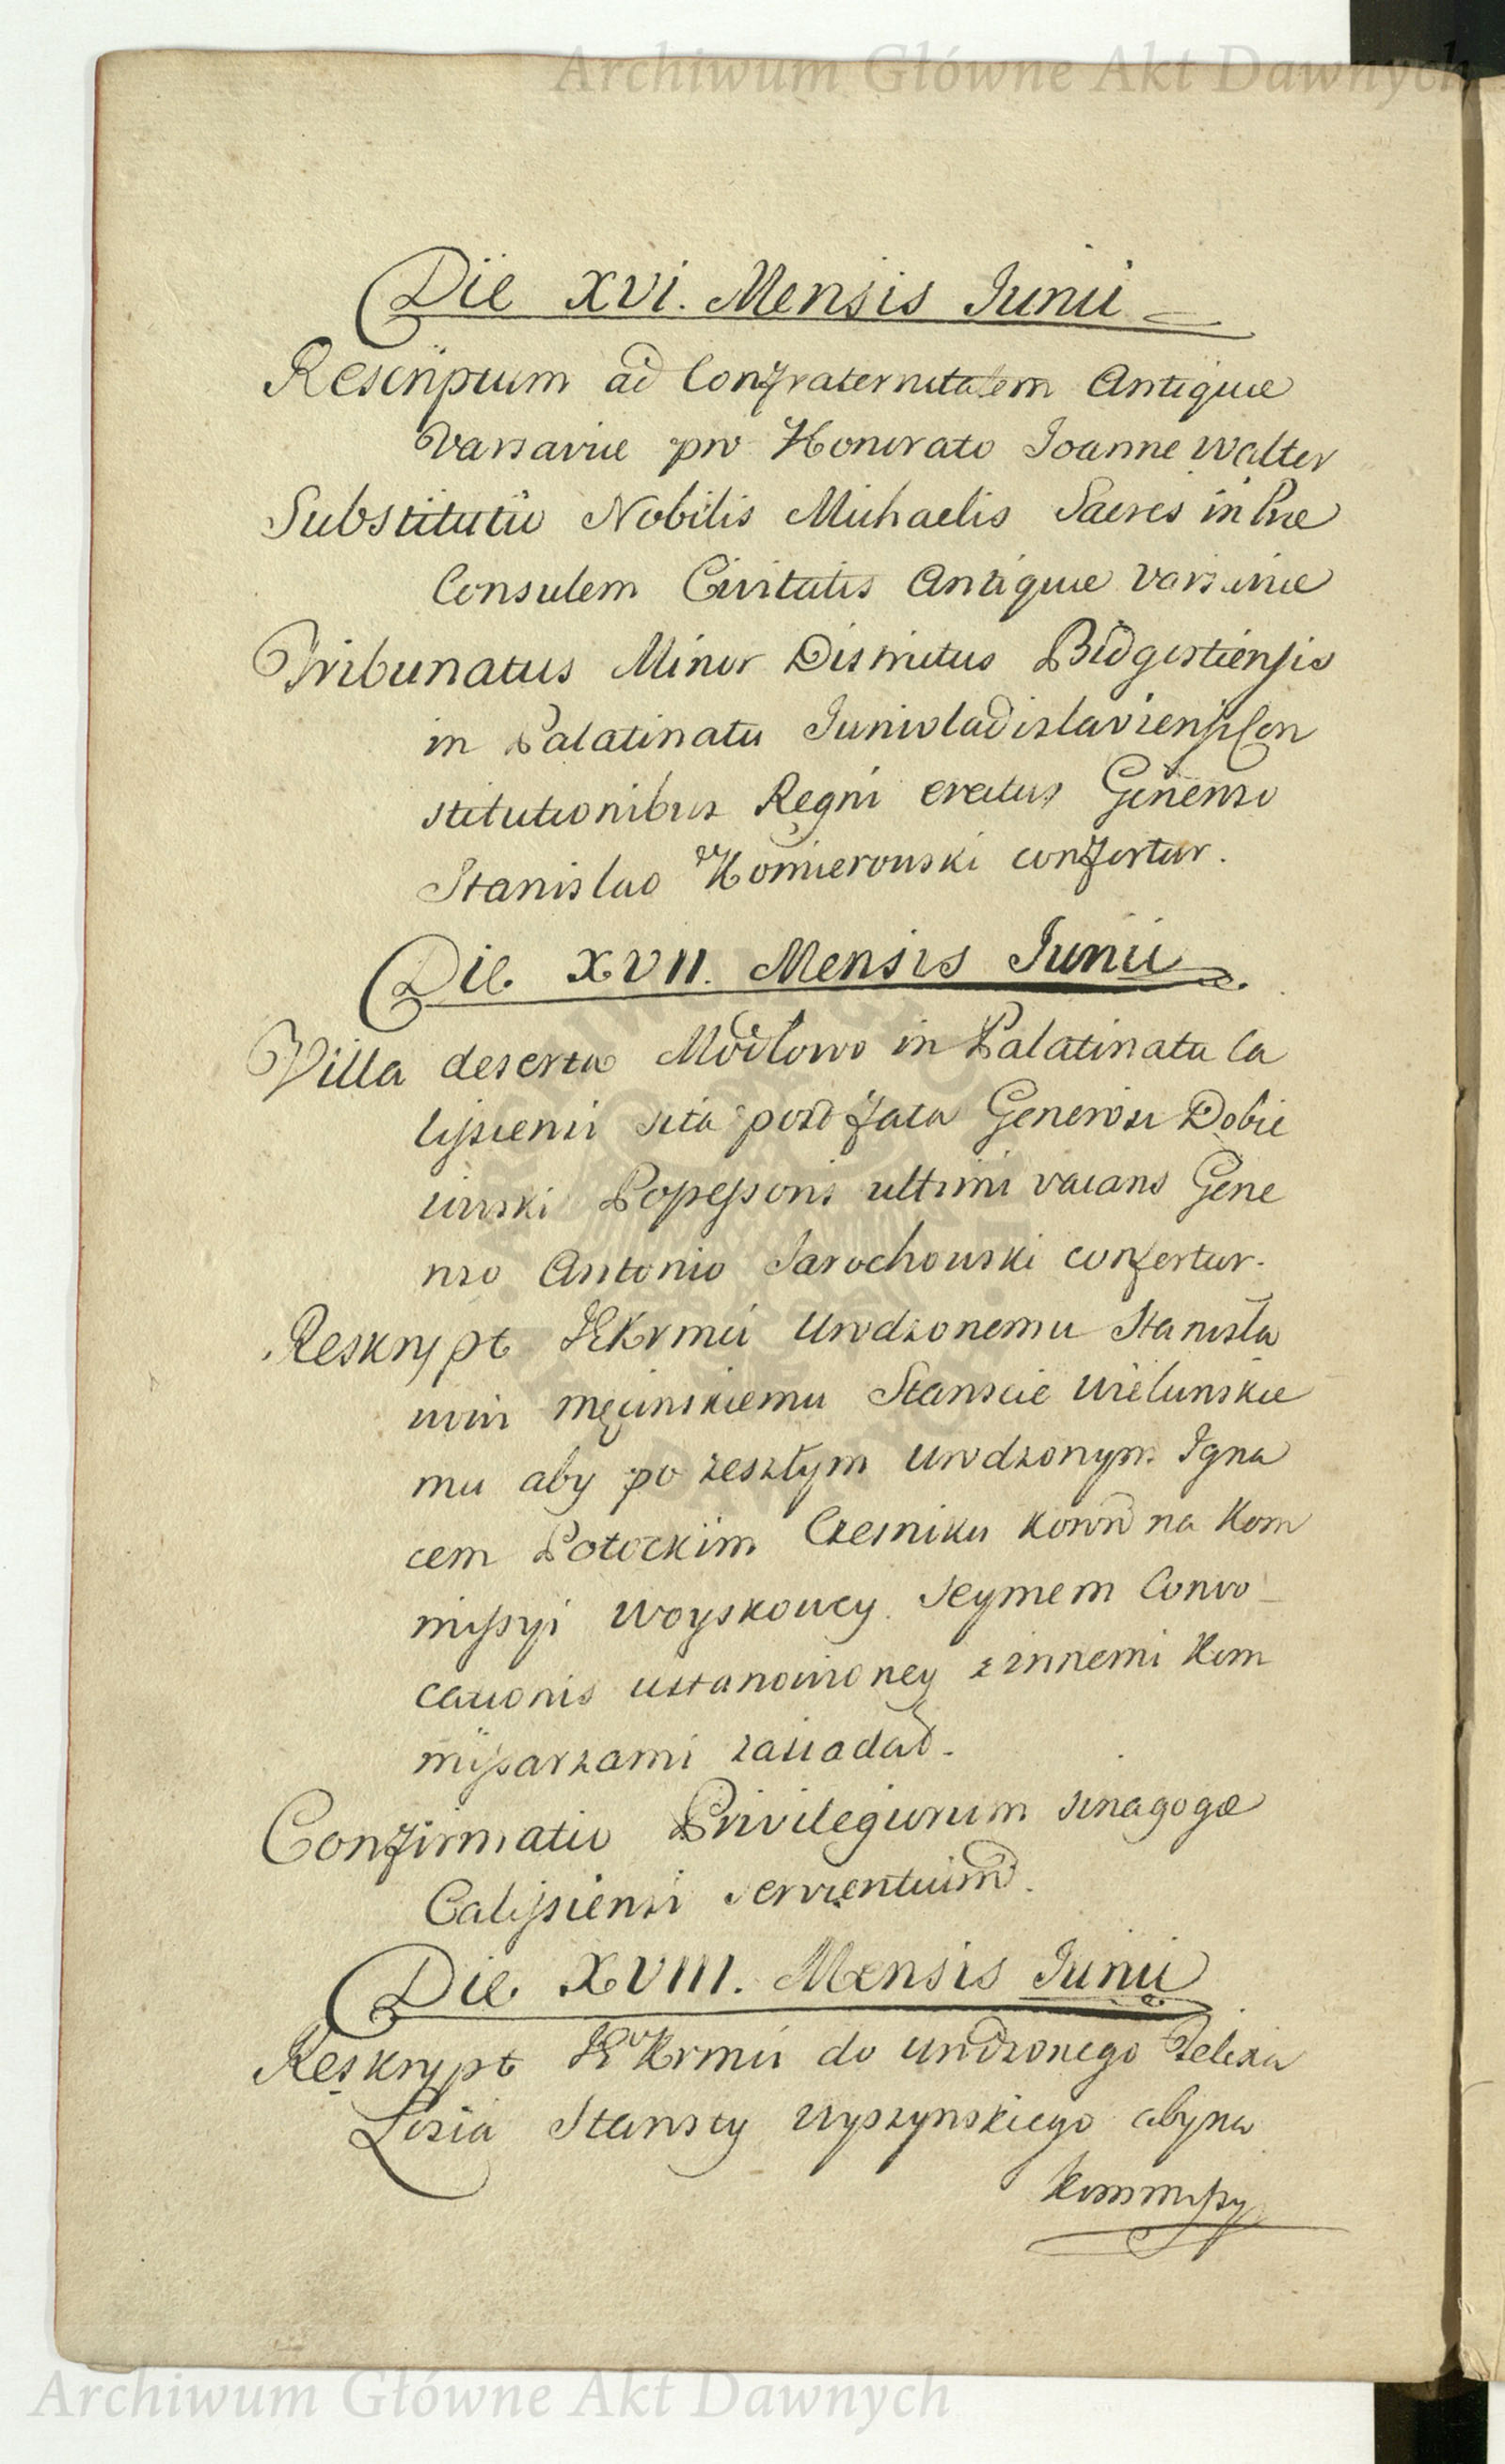 Archiwum Główne Akt Dawnych
Die XVI. Mensis Junii
Rescriptum ad Confraternitatem Antiquæ
Varsaviæ pro Honorato Joanne Walter
Substitutio Nobilis Michaelis Sacres in Præ
Consulem Civitatis Antiquæ Varsaviæ
Tribunatus Minor Districtus Bidgostiensis
in Palatinatu Junivladislaviensi Con
stitutionibus Regni erectus Generoso
Stanislao Komierowski confertur.
Die XVII. Mensis Junii
Villa deserta Modłowo in Palatinatu Ca
lissiensi sita post fata Generosi Dobie
cinski Possessoris ultimi vacans Gene
roso Antonio Jarochowski confertur.
Reskrypt JKrmci Urodzonemu Stanisła
wowi Męcinskiemu Staroscie Wielunskie
mu aby po zeszłym Urodzonym Igna
cem Potockim Czesniku Koron na Kom
missyi Woyskowey Seymem Convo
cationis ustanowioney z innemi Kom
missarzami zasiadał.
Confirmatio Privilegiorum Sinagogæ
Calissiensi servientium.
Die XVIII. Mensis Junii
Reskrypt JKrmci do Urodzonego Felixa
Łosia Starosty Wyszynskiego aby na
Kommissy
Archiwum Główne Akt Dawnych